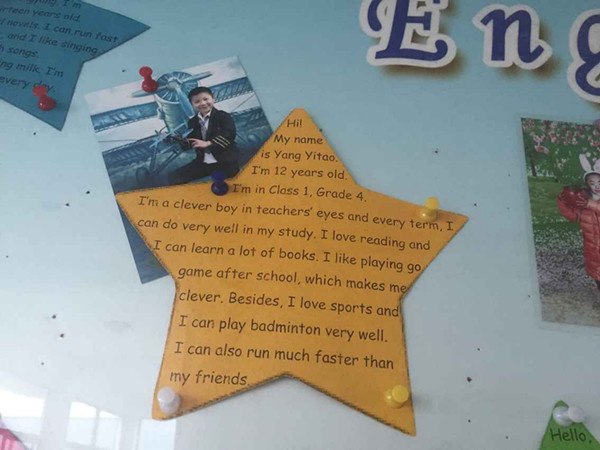 irteen years old.
novels. I can run fast
, and I like singing
h songs.
ng milk. I'm
every
Eng
Hi!
My name
is Yang Yitao.
I'm 12 years old.
I'm in Class 1, Grade 4.
I'm a clever boy in teachers' eyes and every term, I
can do very well in my study. I love reading and
I can learn a lot of books. I like playing go
game after school, which makes me
clever. Besides, I love sports and
I can play badminton very well.
I can also run much faster than
my friends
Hello,